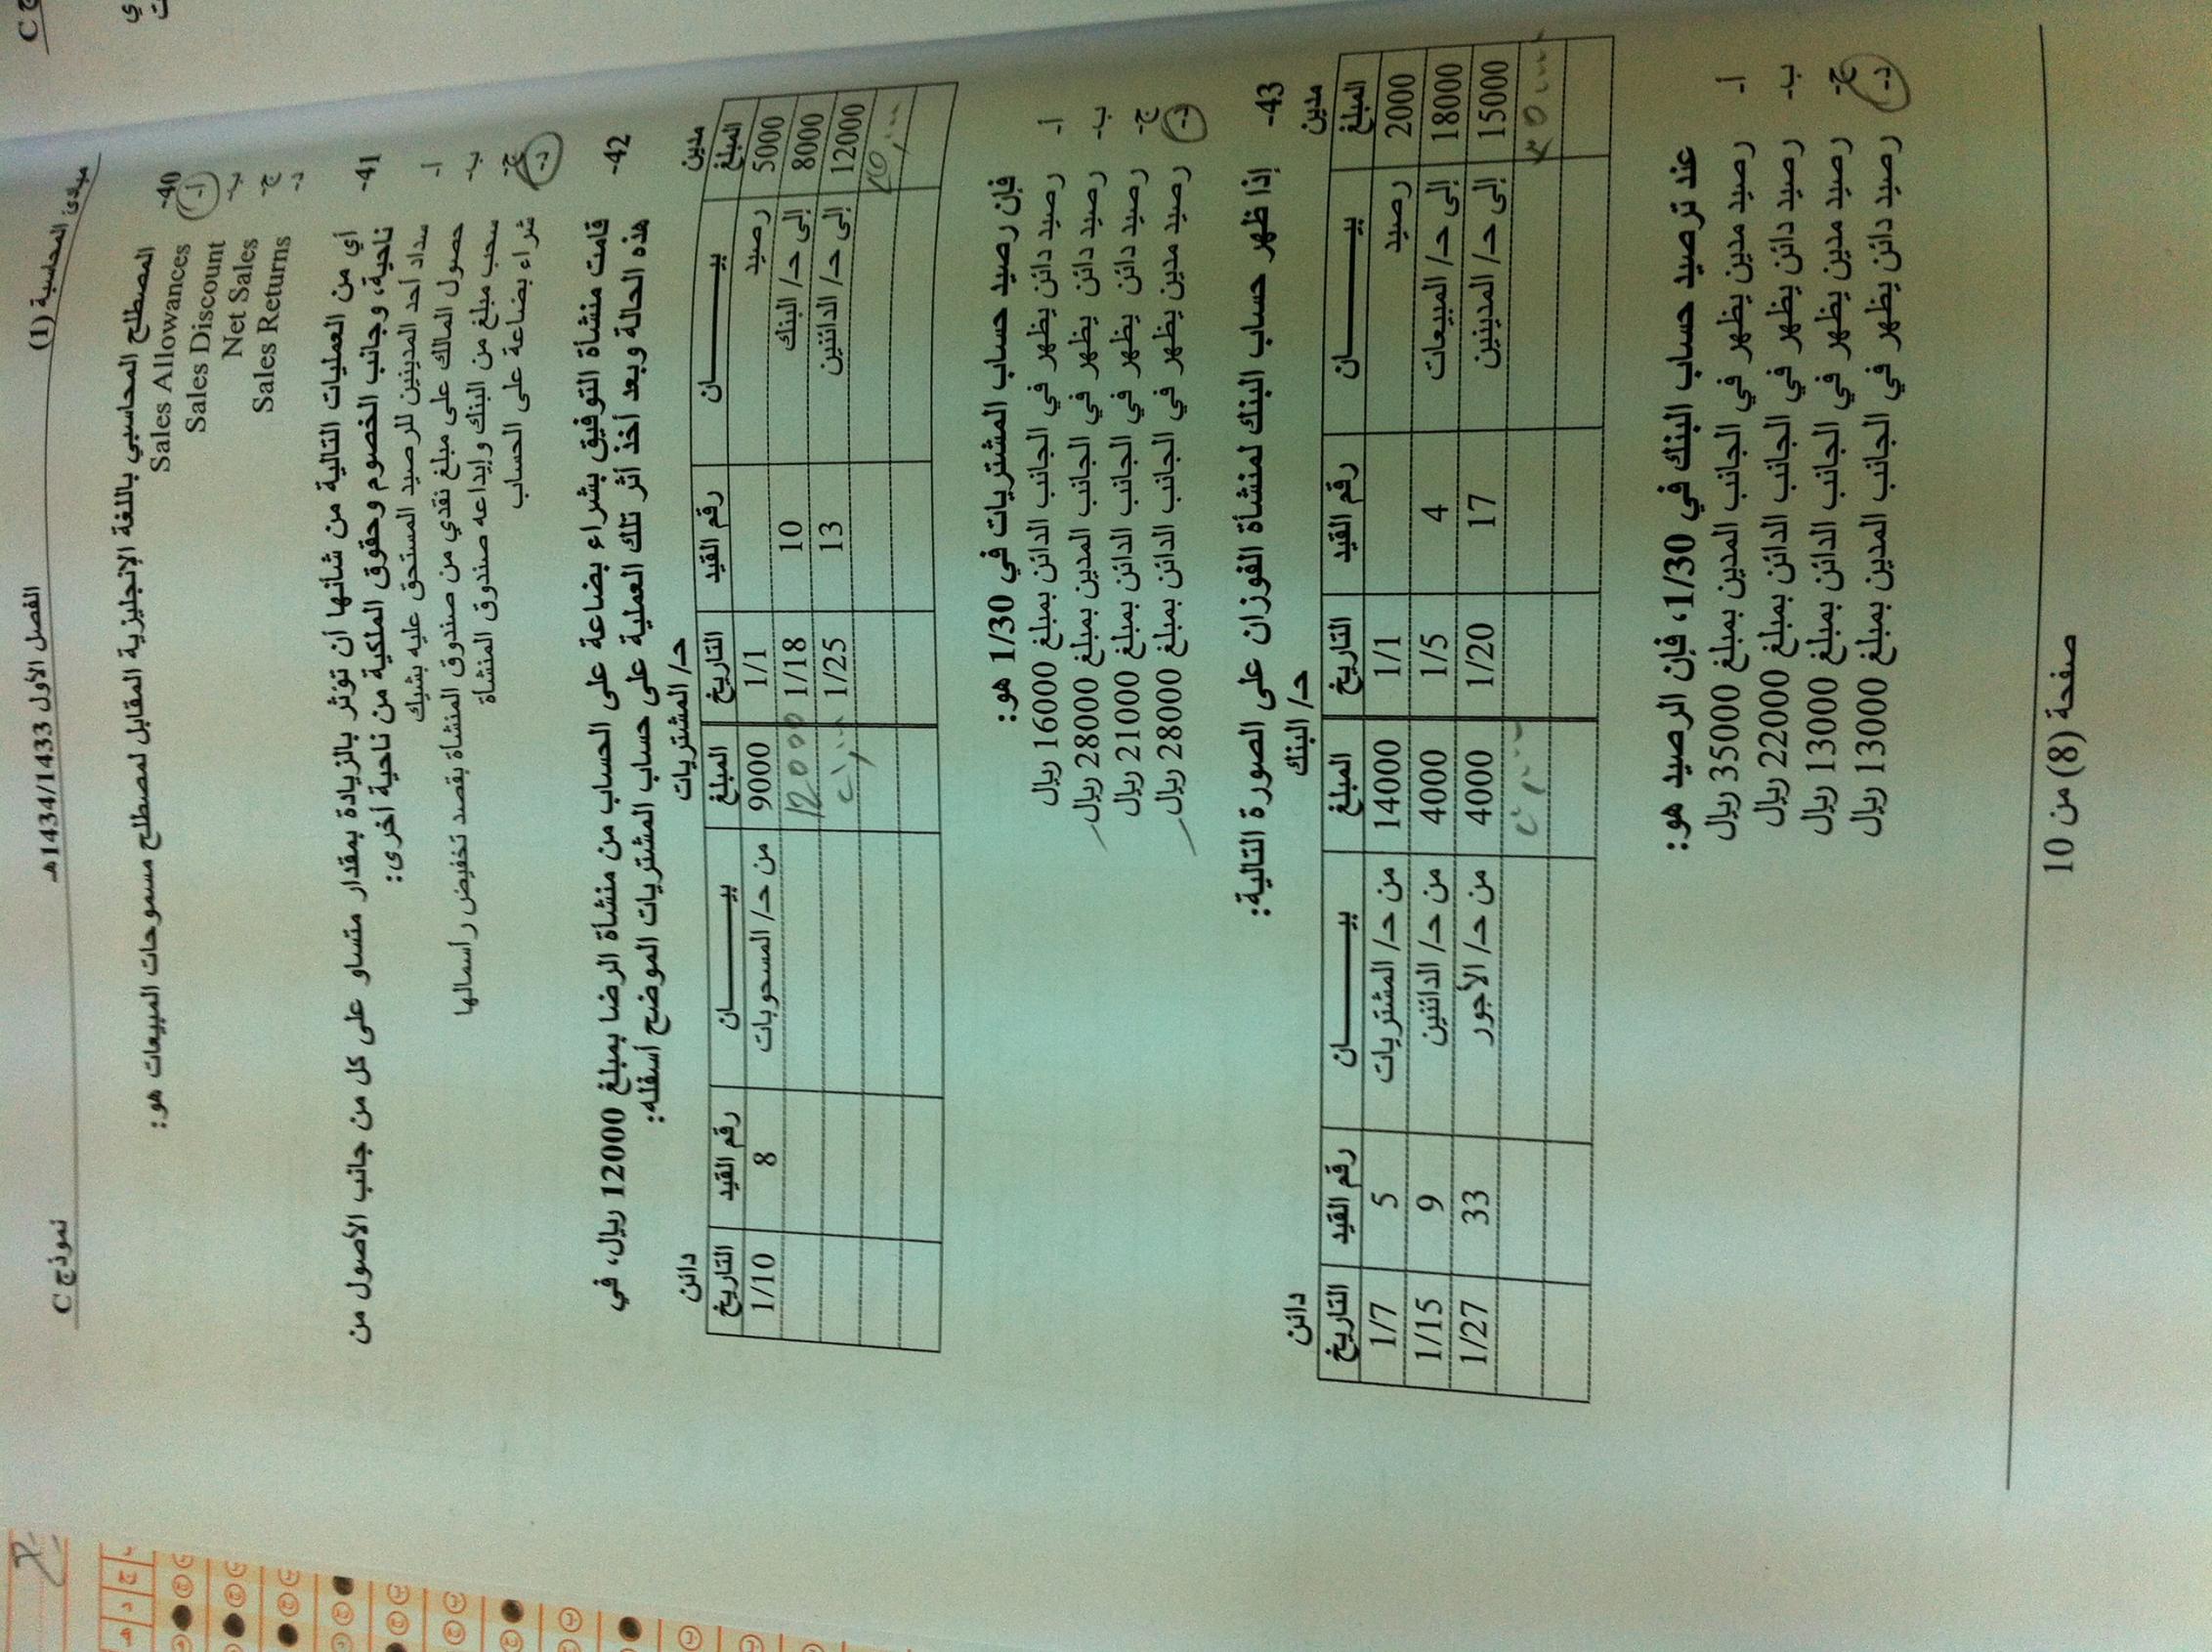 مبادئ المحاسبة (1) الفصل الأول 1434/1433هـ نموذج C
40- المصطلح المحاسبي باللغة الإنجليزية المقابل لمصطلح مسموحات المبيعات هو:
أ- Sales Allowances
ب- Sales Discount
ج- Net Sales
د- Sales Returns
41- أي من العمليات التالية من شأنها أن تؤثر بالزيادة بمقدار متساو على كل من جانب الأصول من
ناحية، وجانب الخصوم وحقوق الملكية من ناحية أخرى:
أ- سداد أحد المدينين للرصيد المستحق عليه بشيك
ب- حصول المالك على مبلغ نقدي من صندوق المنشأة بقصد تخفيض رأسمالها
ج- سحب مبلغ من البنك وإيداعه صندوق المنشأة
د- شراء بضاعة على الحساب
42- قامت منشأة التوفيق بشراء بضاعة على الحساب من منشأة الرضا بمبلغ 12000 ريال، في
هذه الحالة وبعد أخذ أثر تلك العملية على حساب المشتريات الموضح أسفله:
مدين حـ/ المشتريات دائن
المبلغ بيــــــــان رقم القيد التاريخ المبلغ بيــــــــان رقم القيد التاريخ
5000 رصيد 1/1 9000 من حـ/ المسحوبات 8 1/10
8000 إلى حـ/ البنك 10 1/18 12000
12000 إلى حـ/ الدائنين 13 1/25
فإن رصيد حساب المشتريات في 1/30 هو:
أ- رصيد دائن يظهر في الجانب الدائن بمبلغ 16000 ريال
ب- رصيد دائن يظهر في الجانب المدين بمبلغ 28000 ريال
ج- رصيد دائن يظهر في الجانب الدائن بمبلغ 21000 ريال
د- رصيد مدين يظهر في الجانب الدائن بمبلغ 28000 ريال
43- إذا ظهر حساب البنك لمنشأة الفوزان على الصورة التالية:
مدين حـ/ البنك دائن
المبلغ بيــــــــان رقم القيد التاريخ المبلغ بيــــــــان رقم القيد التاريخ
2000 رصيد 1/1 14000 من حـ/ المشتريات 5 1/7
18000 إلى حـ/ المبيعات 4 1/5 4000 من حـ/ الدائنين 9 1/15
15000 إلى حـ/ المدينين 17 1/20 4000 من حـ/ الأجور 33 1/27
عند ترصيد حساب البنك في 1/30، فإن الرصيد هو:
أ- رصيد مدين يظهر في الجانب المدين بمبلغ 35000 ريال
ب- رصيد دائن يظهر في الجانب الدائن بمبلغ 22000 ريال
ج- رصيد مدين يظهر في الجانب الدائن بمبلغ 13000 ريال
د- رصيد دائن يظهر في الجانب المدين بمبلغ 13000 ريال
صفحة (8) من 10